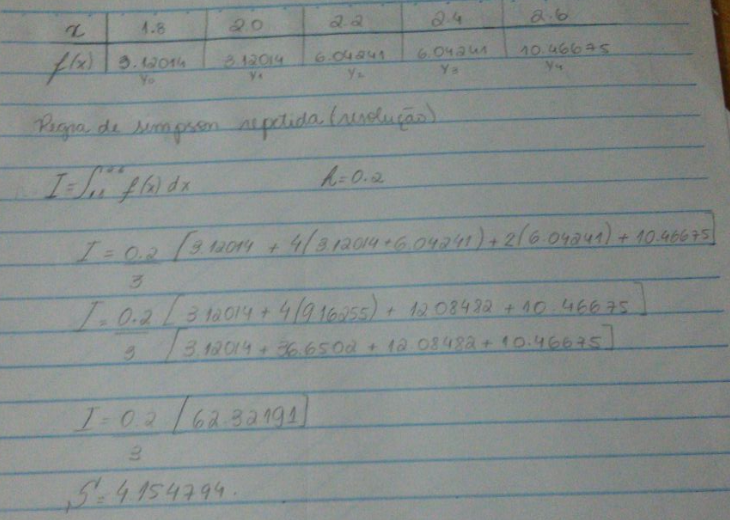 x | 1.8 | 2.0 | 2.2 | 2.4 | 2.6
f(x) | 3.12014 | 3.12014 | 6.04241 | 6.04241 | 10.46675
y₀ y₁ y₂ y₃ y₄
Regra de simpson repetida (resolução)
I = ∫ f(x) dx h = 0.2
I = 0.2/3 [3.12014 + 4(3.12014 + 6.04241) + 2(6.04241) + 10.46675]
I = 0.2/3 [3.12014 + 4(9.16255) + 12.08482 + 10.46675]
[3.12014 + 36.6502 + 12.08482 + 10.46675]
I = 0.2/3 [62.32191]
S = 4.154794.